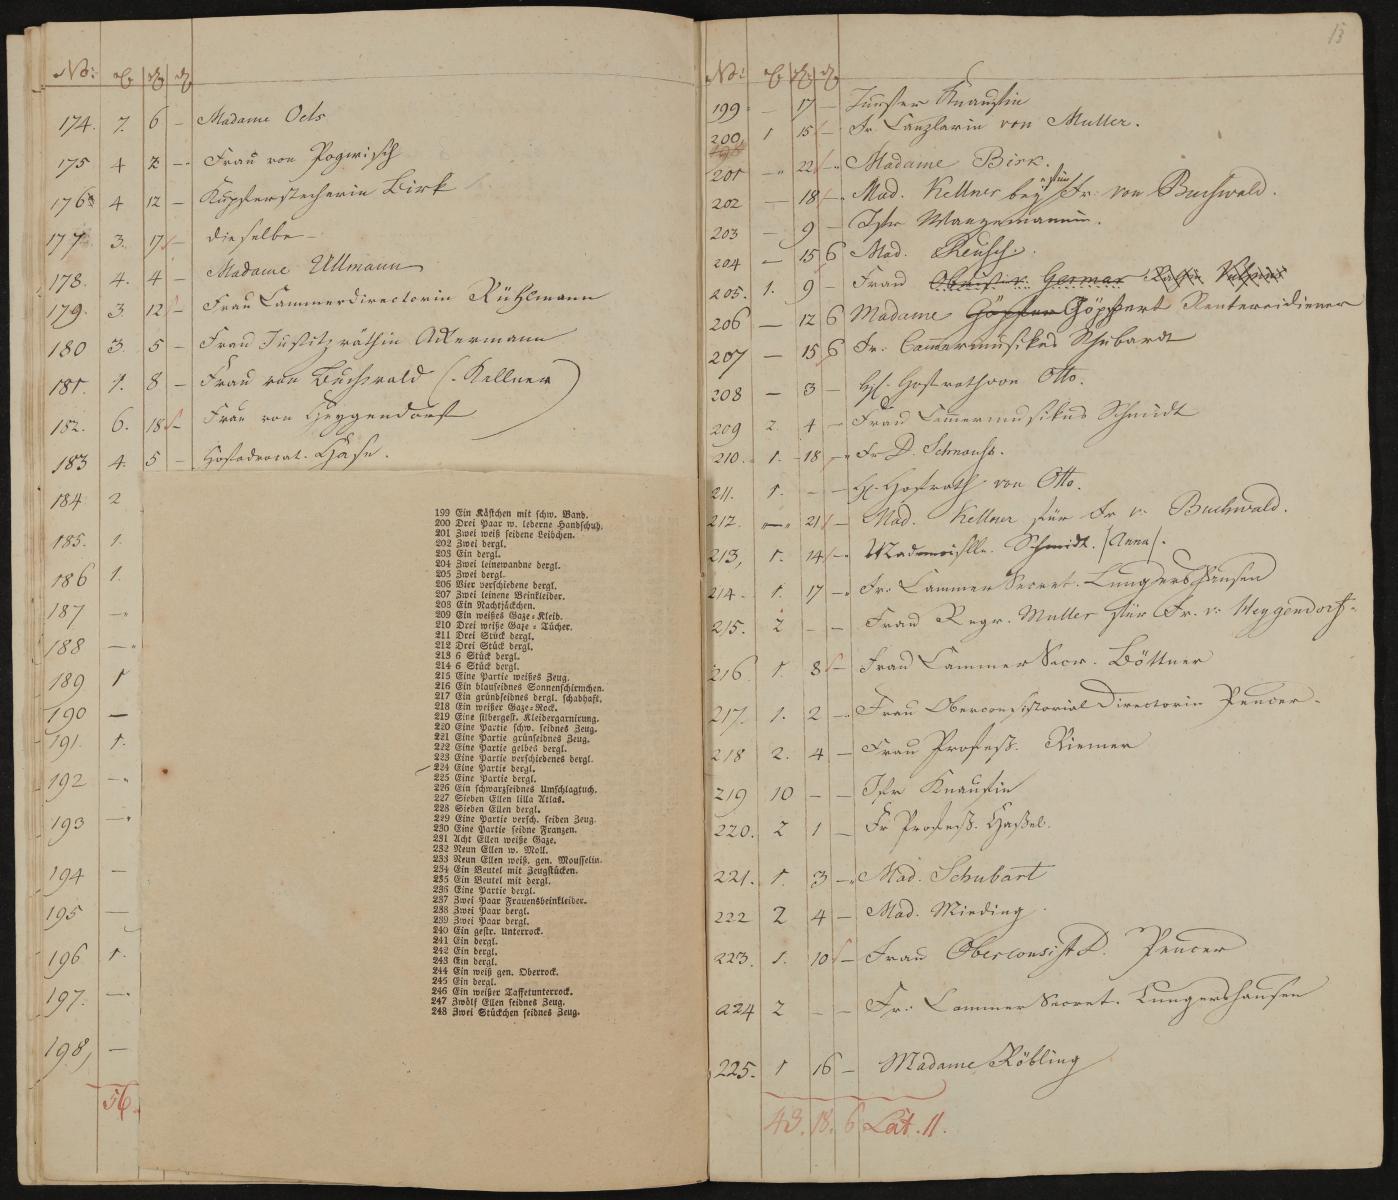 No:
174. 7. 6 – Madame Oels
175 4 2 – Frau von Pogwisch
176 4 12 – Kupferstecherin Birk
177 3. 17 – dieselbe –
178. 4. 4 – Madame Ullmann
179. 3 12 – Frau Cammerdirectorin Rühlmann
180 3. 5 – Frau Justitzräthin Ackermann
181. 1. 8 – Frau von Buchwald (Kellner)
182. 6. 18 – Frau von Heygendorf
183 4. 5 – Hofadvocat. Hase.
184 2
185. 1.
186 1.
187 –
188 –
189 1
190 –
191. 1.
192 –
193 –
194 –
195 –
196 1.
197. –
198, –
56.
199 Ein Kästchen mit schw. Band.
200 Drei Paar w. lederne Handschuh.
201 Zwei weiß seidene Leibchen.
202 Zwei dergl.
203 Ein dergl.
204 Zwei leinewandne dergl.
205 Zwei dergl.
206 Vier verschiedene dergl.
207 Zwei leinene Beinkleider.
208 Ein Nachtjäckchen.
209 Ein weißes Gaze-Kleid.
210 Drei weiße Gaze-Tücher.
211 Drei Stück dergl.
212 Drei Stück dergl.
213 6 Stück dergl.
214 6 Stück dergl.
215 Eine Partie weißes Zeug.
216 Ein blauseidnes Sonnenschirmchen.
217 Ein gründseidnes dergl. schadhaft.
218 Ein weißer Gaze-Rock.
219 Eine silbergest. Kleidergarnirung.
220 Eine Partie schw. seidnes Zeug.
221 Eine Partie grünseidnes Zeug.
222 Eine Partie gelbes dergl.
223 Eine Partie verschiedenes dergl.
224 Eine Partie dergl.
225 Eine Partie dergl.
226 Ein schwarzseidnes Umschlagtuch.
227 Sieben Ellen lilla Atlas.
228 Sieben Ellen dergl.
229 Eine Partie versch. seiden Zeug.
230 Eine Partie seidne Franzen.
231 Acht Ellen weiße Gaze.
232 Neun Ellen w. Moll.
233 Neun Ellen weiß. gen. Mousselin.
234 Ein Beutel mit Zeugstücken.
235 Ein Beutel mit dergl.
236 Eine Partie dergl.
237 Zwei Paar Frauensbeinkleider.
238 Zwei Paar dergl.
239 Zwei Paar dergl.
240 Ein gestr. Unterrock.
241 Ein dergl.
242 Ein dergl.
243 Ein dergl.
244 Ein weiß gen. Oberrock.
245 Ein dergl.
246 Ein weißer Taffetunterrock.
247 Zwölf Ellen seidnes Zeug.
248 Zwei Stückchen seidnes Zeug.
13
No:
199 – 17 – Jungfer Knaustin
200 1 15 – Fr. Canzlarin von Müller.
201 – 22 – Madame Birk.
202 – 18 – Mad. Kellner bey Fr. von Buchwald.
203 – 9 – Jgfr Wangemannin.
204 – 15 6 Mad. Reusch.
205. 1. 9 – Frau Obrist v. Germar Räthin Vulpius
206 – 12 6 Madame Göpfert Rentereidiener
207 – 15 6 Fr. Cammermusikus Schubardt
208 – 3 – H. Hofrath von Otto.
209 2. 4 – Frau Cammermusikus Schmidt
210. 1. 18 – Fr D. Schnauss.
211. 1. – – H. Hofrath von Otto.
212. – 21 – Mad. Kellner für Fr v. Buchwald.
213, 1. 14 – Mademoiselle. Schmidt. /Anna/.
214. 1. 17 – Fr. Cammer Secret. Lungershausen
215. 2 – – Frau Regr. Muller für Fr. v. Heygendorf.
216. 1. 8 – Frau Cammer Secr. Böttner
217. 1. 2 – Frau Oberconsistorial Directorin Peucer.
218 2. 4 – Frau Profess. Riemer
219 10 – – Jgfr Knaustin
220. 2 1 – Fr Profess. Hassel.
221. 1. 3 – Mad. Schubart
222 2 4 – Mad. Mieding
223. 1. 10 – Frau Oberconsist D. Peucer
224 2 – – Fr. Cammer Secret. Lungershausen
225. 1 16 – Madame Röbling
43. 18. 6 Lat. 11.